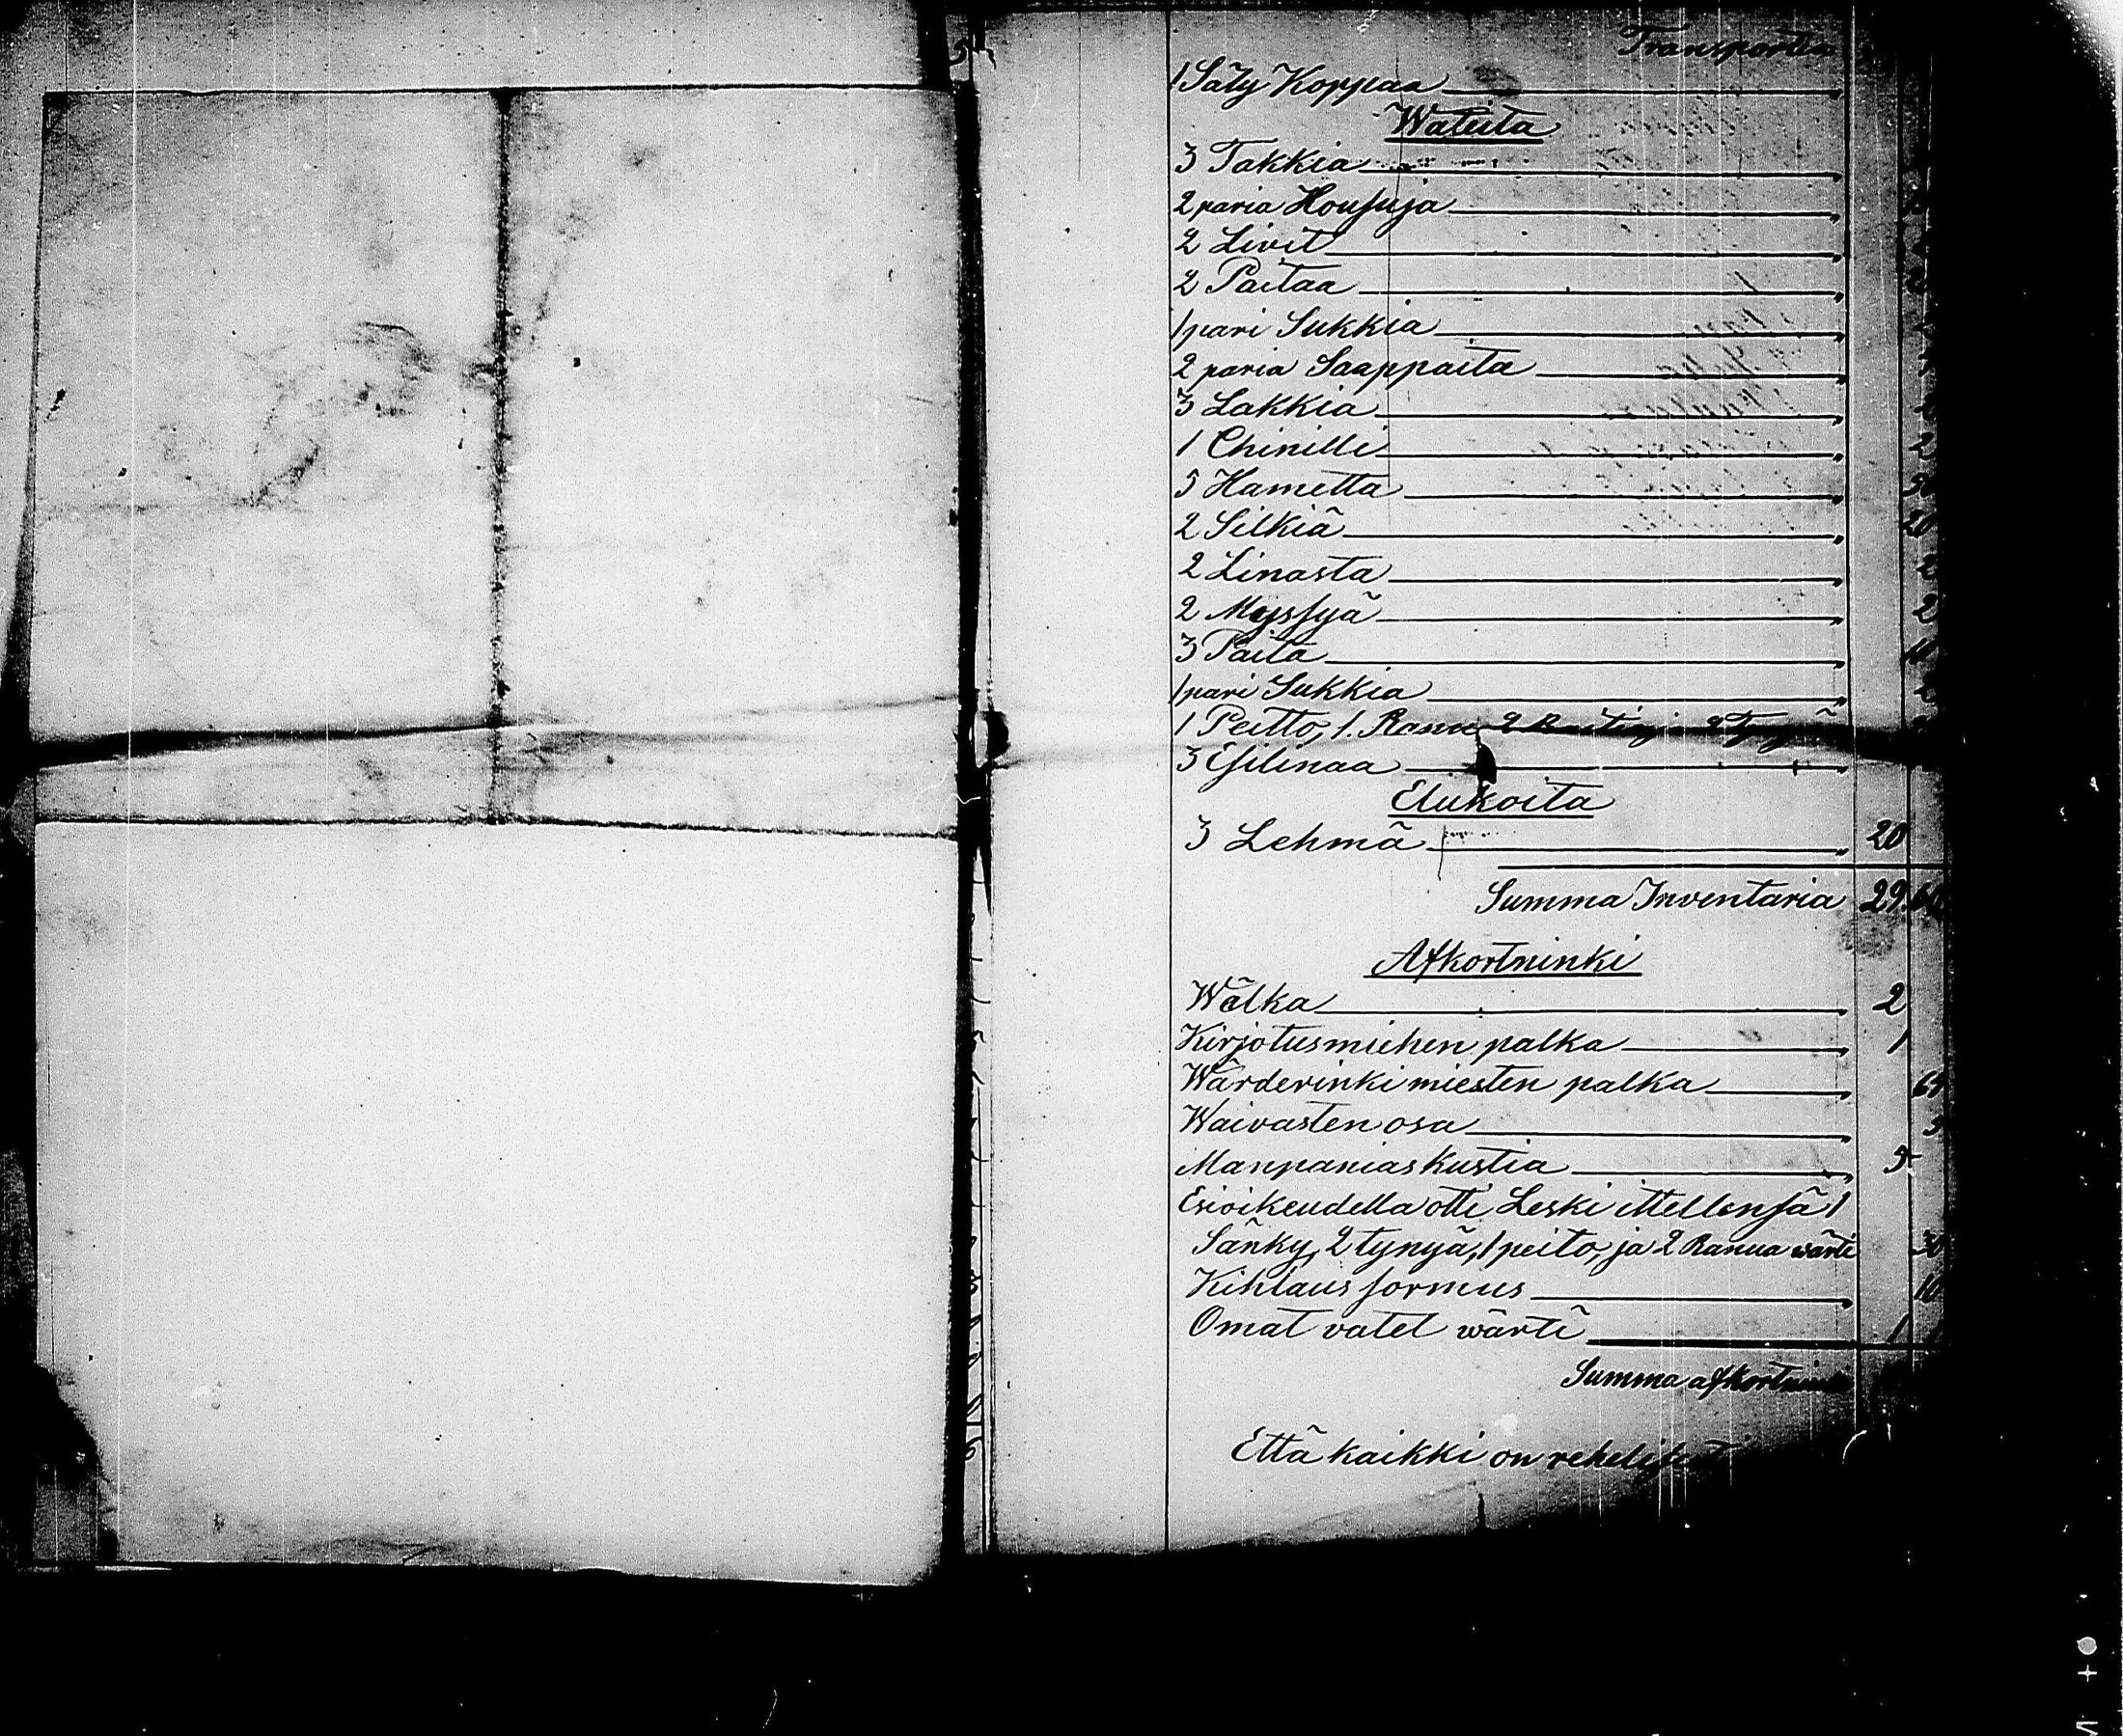 Transportia
1 Säty Koppaa
Wateita
3 Takkia
2 paria Housuja
2 Livit
2 Paitaa
1 pari Sukkia
2 paria Saappaita
3 Lakkia
1 Chinilli 2
5 Hametta
2 Silkiä 20
2 Linasta 2
2 Myssyä 2
3 Paita
1 pari Sukkia
1 Peitto, 1. Ranu
3 Esilinaa
Elukoita
3 Lehmä 20
Summa Inventaria 29.
Afkortninki
Wälka 2
Kirjotusmiehen palka 1
Wärderinki miesten palka 64
Waivasten osa 3
Manpaniaskustia 5
Esioikeudella otti Leski ittellensä 1
Sänky, 2 tynyä, 1 peito, ja 2 Ranua wärti
Kihlaus sormus 10
Omat vatet wärti 1
Summa afkortnin
Että kaikki on